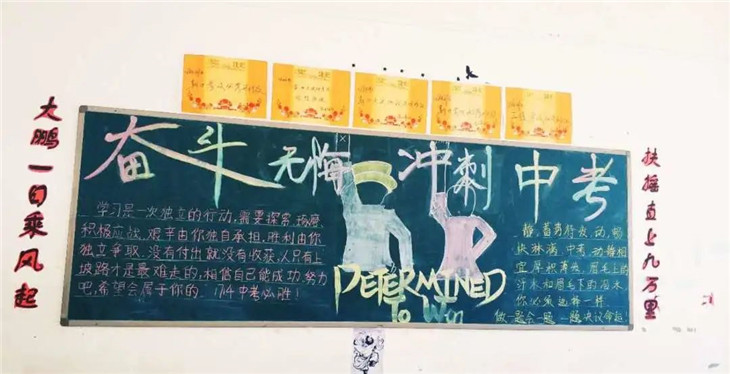 大鹏一日乘风起
奋斗无悔 冲刺中考
学习是一次独立的行动,需要探索,琢磨,
积极应战,艰辛由你独自承担,胜利由你
独立争取.没有付出就没有收获,人只有上
坡路才是最难走的,相信自己能成功,努力
吧,希望会属于你的.174中考必胜!
DETERMINED
To Win
静,蓄势待发,动,畅
快淋漓,中考,动静相
宜,厚积薄发.眉毛上的
汗水和眉毛下的泪水
你必须选择一样.
做一题会一题,一题决议命运!
扶摇直上九万里